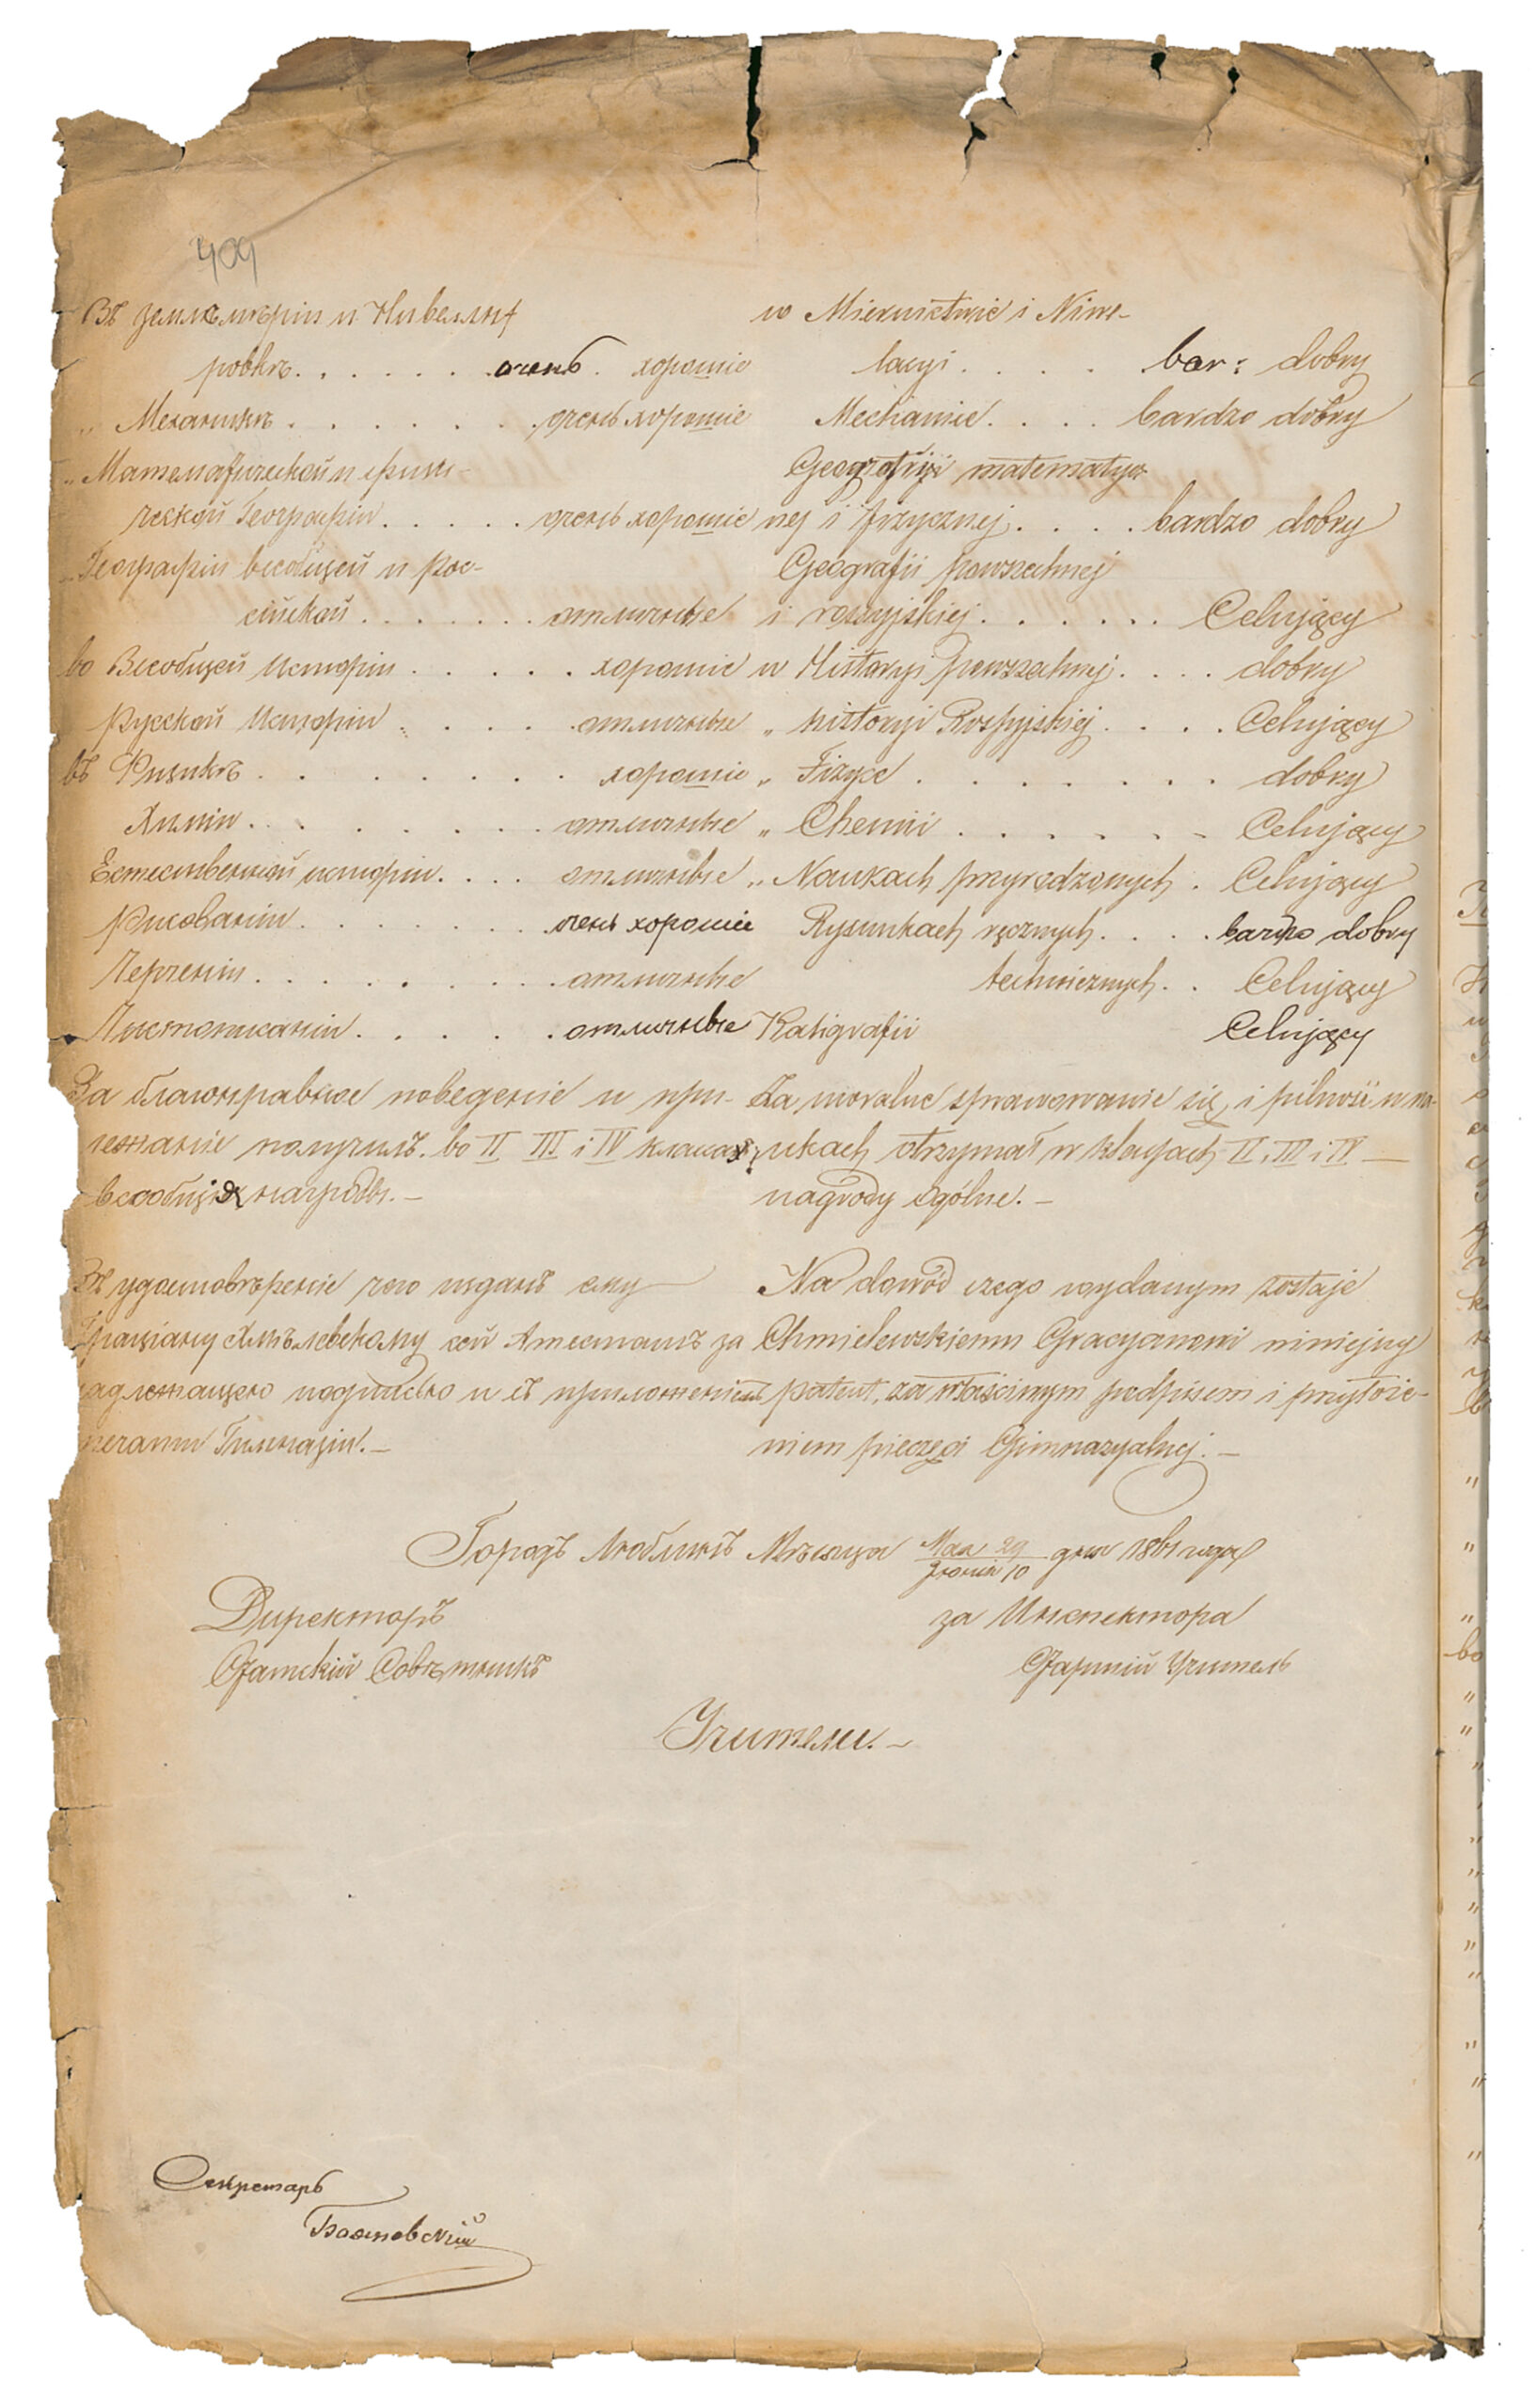 409
Въ землемѣріи и Нивелли-
ровкѣ. . . . . . очень . хорошіе
„ Механикѣ . . . . . . . очень хорошіе
„ Математической и физи-
ческой Географіи . . . . . очень хорошіе
„ Географіи всеобщей и рос-
сійской . . . . . . . отличные
во Всеобщей Исторіи . . . . . хорошіе
Русской Исторіи . . . . . отличные
въ Физикѣ . . . . . . . . хорошіе
Химіи . . . . . . . . отличные
Естественной исторіи . . . . отличные
Рисованіи . . . . . . . очень хорошіе
Черченіи . . . . . . . . отличные
Чистописаніи . . . . . отличные
За благонравное поведеніе и при-
лежаніе получилъ во II III i IV классахъ
всеобщія награды. —
Въ удостовѣреніе чего изданъ ему
Граціану Хмѣлевскому сей Атестатъ за
надлежащею подписью и съ приложеніемъ
печати Гимназіи. —
w Miernictwie i Niwe-
lacyi . . . . bar: dobry
Mechanice . . . . bardzo dobry
Geografiji matematycz-
nej i fizycznej . . . . bardzo dobry
Geografii powszechnej
i rossyjskiej . . . . . . Celujący
w Historyi powszechnej . . . . dobry
„ historyi Rossyjskiej . . . . Celujący
„ Fizyce . . . . . . . dobry
„ Chemii . . . . . . Celujący
„ Naukach przyrodzonych . Celujący
Rysunkach ręcznych . . . . bardzo dobry
technicznych . . Celujący
Kaligrafii Celujący
Za moralne sprawowanie się, i pilność w na-
ukach otrzymał w klassach II i III i IV —
nagrody ogólne. —
Na dowód czego wydanym zostaje
Chmielewskiemu Gracyanowi niniejszy
patent, za właściwym podpisem i przyłoże-
niem pieczęci Gimnazyalnej. —
Городъ Люблинъ Мѣсяца Мая 29 / Іюня 10 дня 1861 года
Директоръ
Статскій Совѣтникъ
за Инспектора
Старшій Учитель
Учители. —
Секретарь